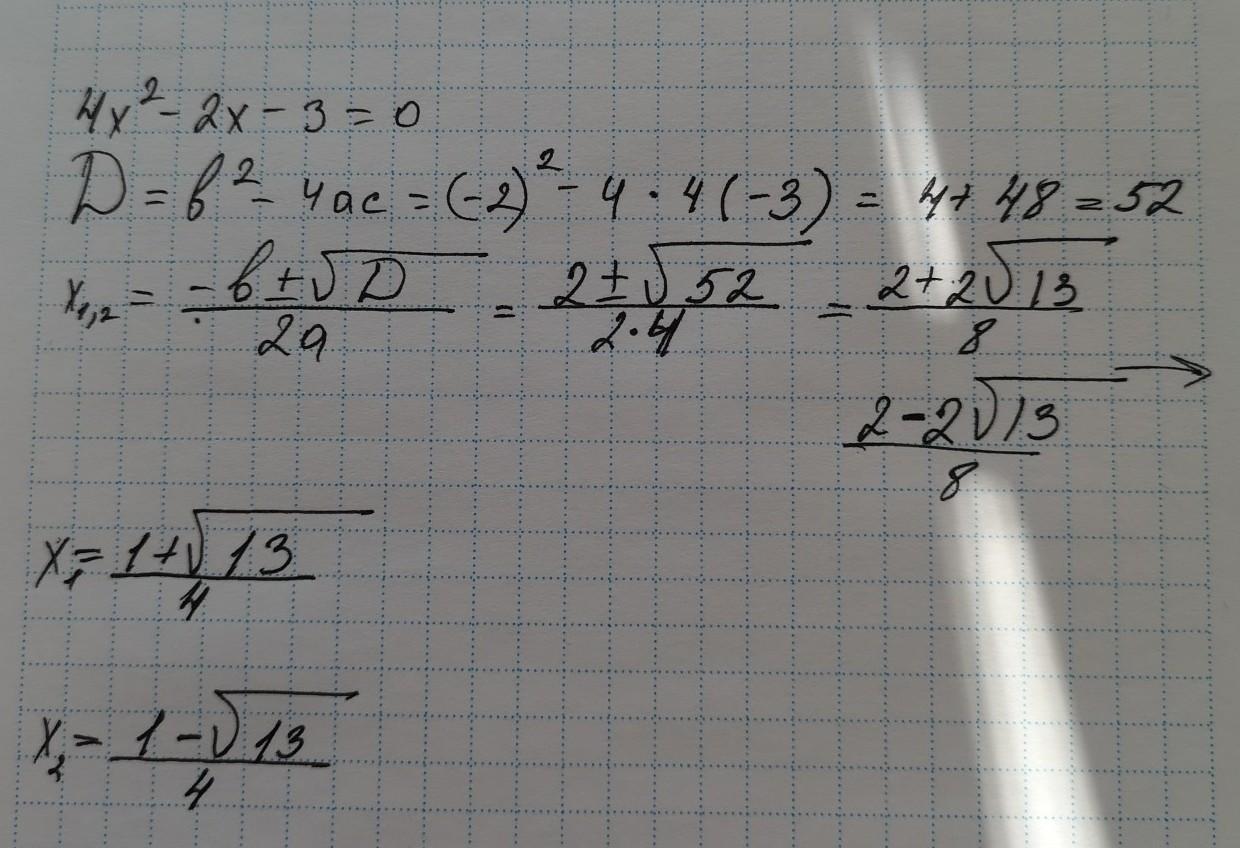 4x² - 2x - 3 = 0
D = b² - 4ac = (-2)² - 4 · 4(-3) = 4 + 48 = 52
x₁,₂ = (-b ± √D)/(2a) = (2 ± √52)/(2·4) = (2 + 2√13)/8
(2 - 2√13)/8 →
x₁ = (1 + √13)/4
x₂ = (1 - √13)/4